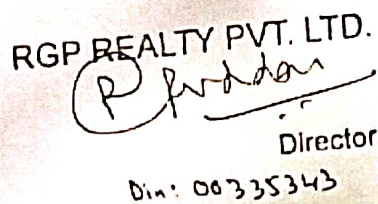 RGP REALTY PVT. LTD.
Director
Din: 00335343